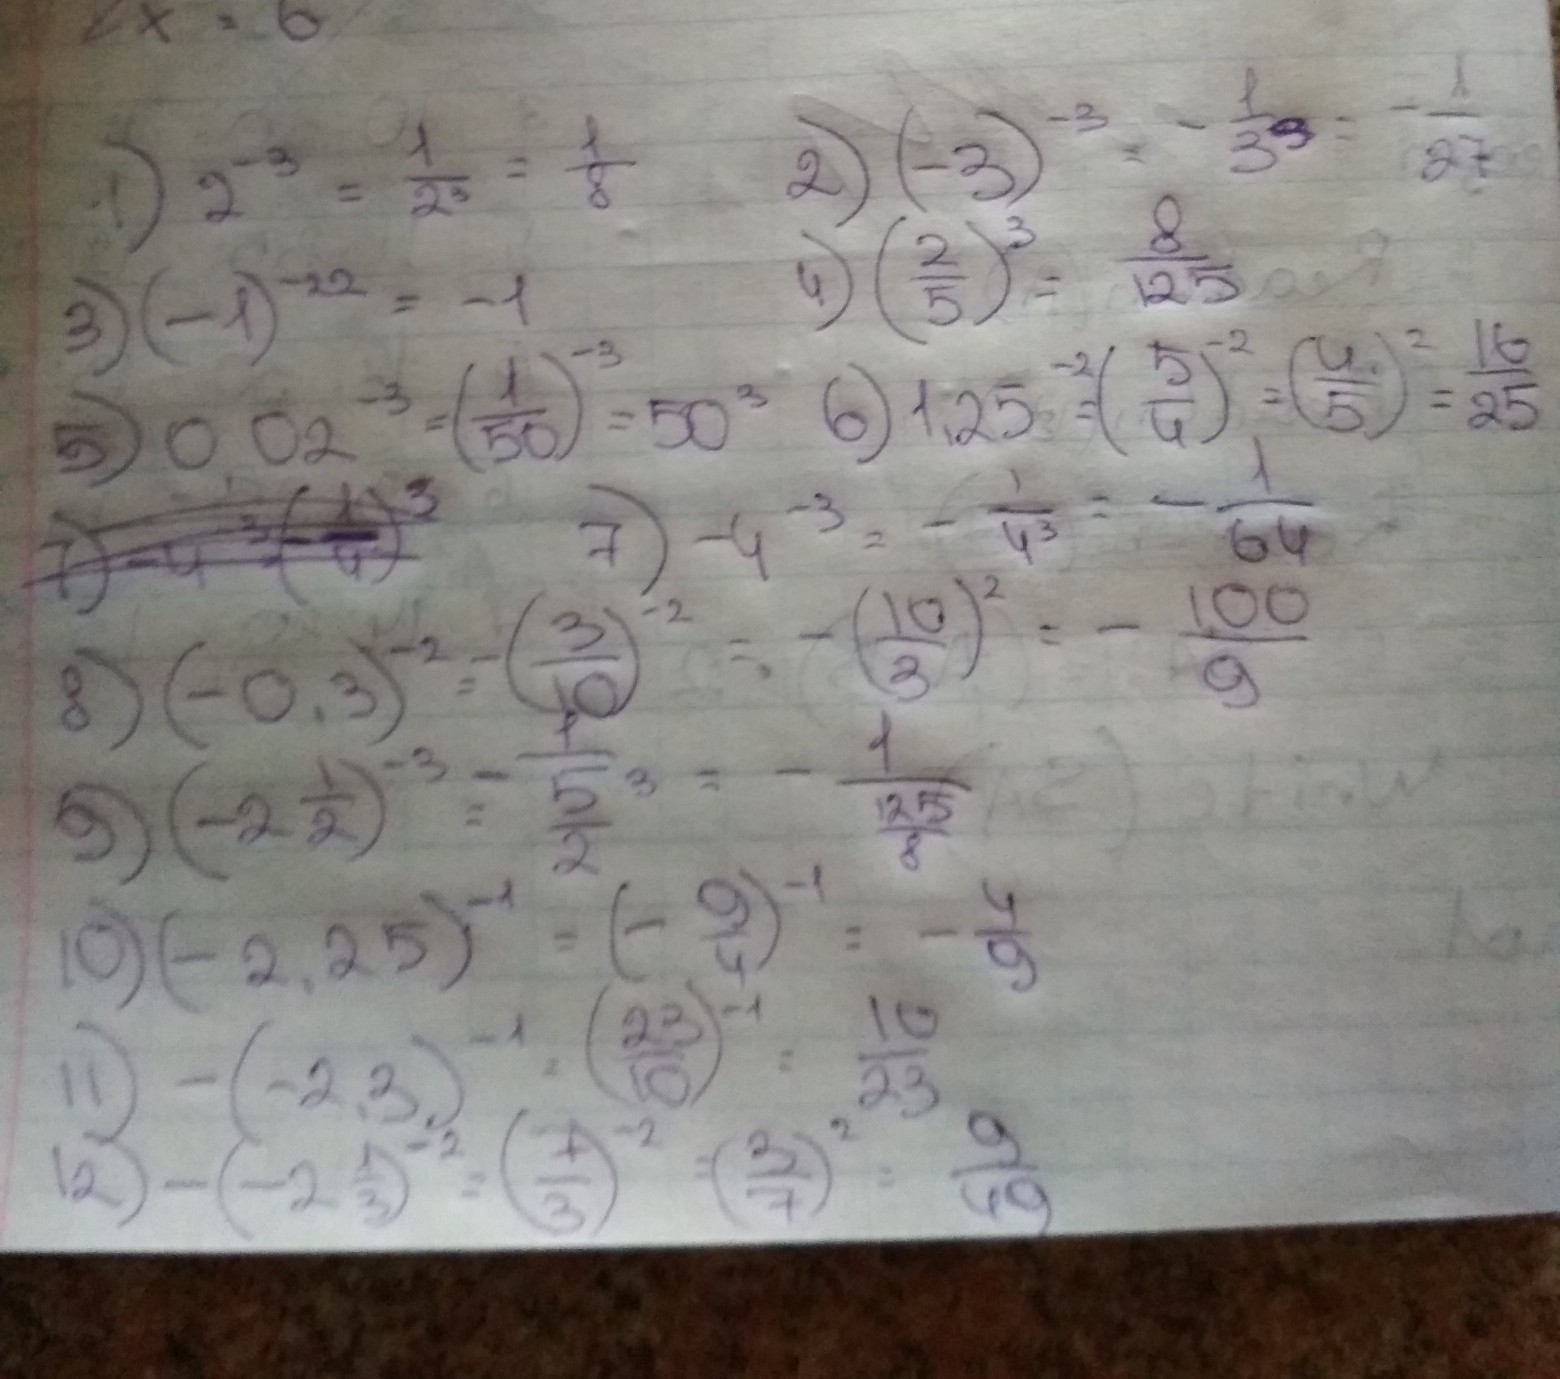 2x = 6
1) 2^-3 = 1/2^3 = 1/8 2) (-3)^-3 = -1/3^3 = -1/27
3) (-1)^-22 = -1 4) (2/5)^3 = 8/125
5) 0,02^-3 = (1/50)^-3 = 50^3 6) 1,25^-2 = (5/4)^-2 = (4/5)^2 = 16/25
7) -4^-3 = -1/4^3 = -1/64
8) (-0,3)^-2 = -(3/10)^-2 = -(10/3)^2 = -100/9
9) (-2 1/2)^-3 = -1/(5/2)^3 = -1/(125/8)
10) (-2,25)^-1 = (-9/4)^-1 = -4/9
11) -(-2,3)^-1 = (23/10)^-1 = 10/23
12) -(-2 1/3)^-2 = (7/3)^-2 = (3/7)^2 = 9/49